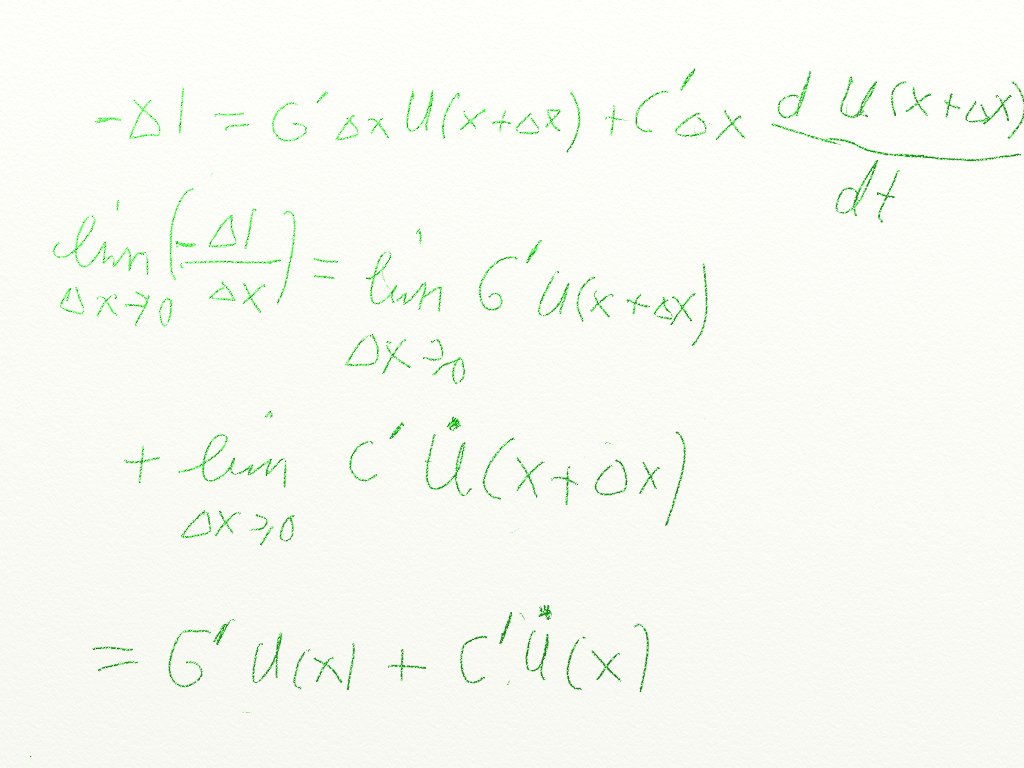 -ΔI = G'Δx U(x+Δx) + C'Δx d U(x+Δx)/dt
lim Δx→0 (-ΔI/Δx) = lim Δx→0 G' U(x+Δx)
+ lim Δx→0 C' U̇(x+Δx)
= G' U(x) + C' U̇(x)